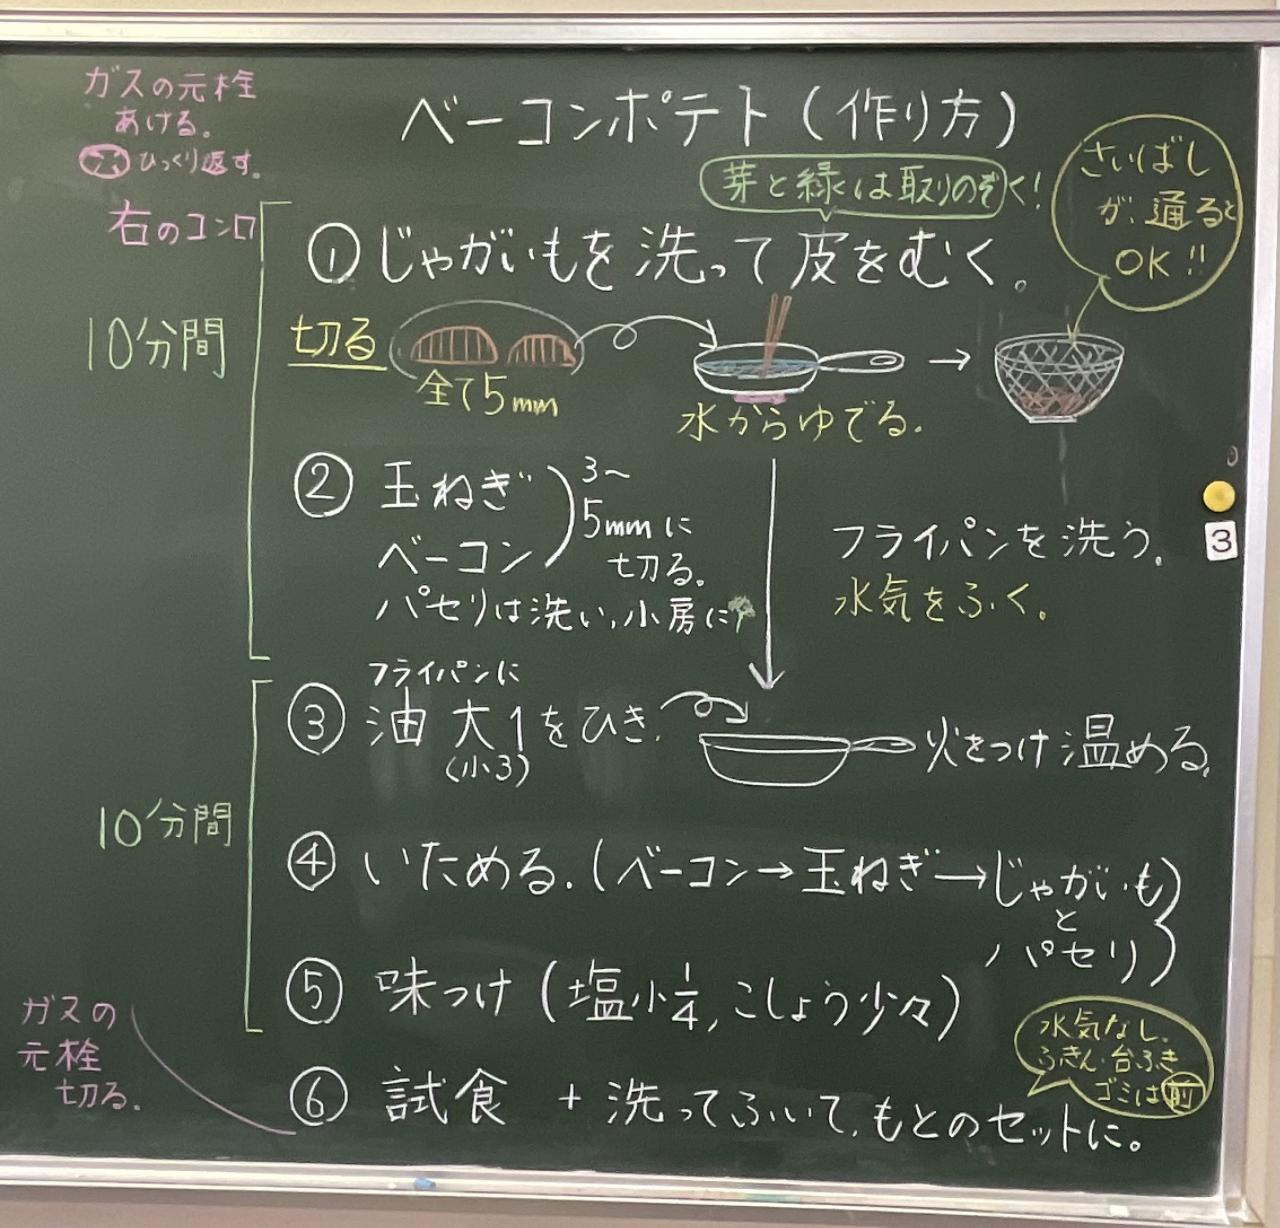 ガスの元栓
あける。
ひっくり返す。
ベーコンポテト(作り方)
芽と緑は取りのぞく!
さいばし
が通ると
OK!!
右のコンロ
①じゃがいもを洗って皮をむく。
10分間
切る
全て5mm
水からゆでる.
②玉ねぎ
ベーコン
3〜
5mmに
切る。
パセリは洗い,小房に
フライパンを洗う。
水気をふく。
3
フライパンに
③油 大1をひき
(小3)
火をつけ温める。
10分間
④いためる.(ベーコン→玉ねぎ→じゃがいも
と
パセリ)
⑤味つけ(塩小1/4,こしょう少々)
ガスの
元栓
切る.
水気なし.
ふきん・台ふき
ゴミは前
⑥試食 +洗ってふいて,もとのセットに。